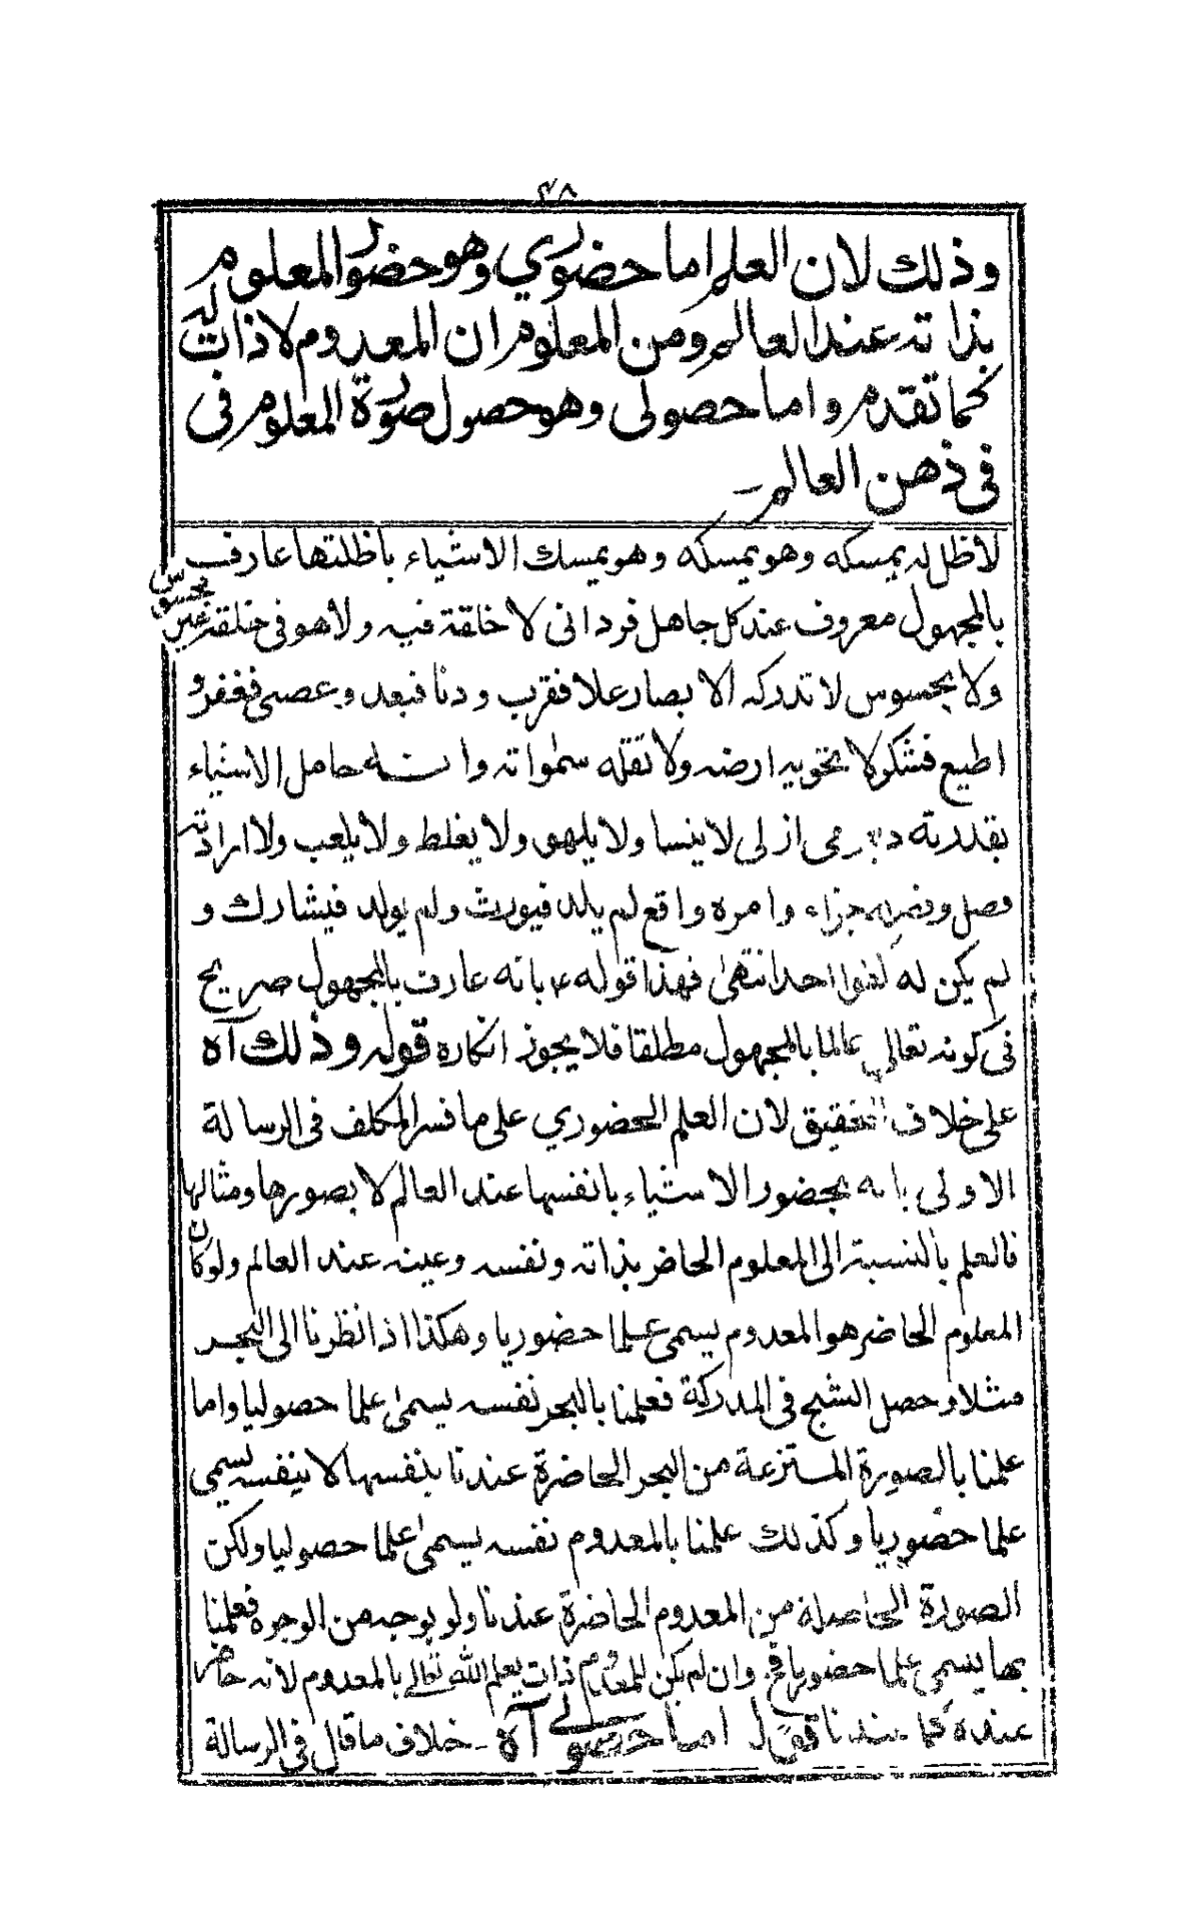 ٤٨
وذلك لان العلم اما حضوري وهو حضور المعلوم
بذاته عند العالم ومن المعلوم ان المعدوم لا ذات له
كما تقدم واما حصولى وهو حصول صورة المعلوم فى
فى ذهن العالم ـ
لا ظل له يمسكه وهو يمسكه وهو يمسك الاشياء باظلتها عارف
بالمجهول معروف عند كل جاهل فردانى لا خلقة فيه ولا هو فى خلقه غير محسوس
ولا بمحسوس لا تدركه الابصار علا فقرب ودنا فبعد وعصى فغفر و
اطيع فشكر لا تحويه ارضه ولا تقله سمواته وانه حامل الاشياء
بقدرته ازلى لا ينسا ولا يلهو ولا يغلط ولا يلعب ولا ارادته
فصل و جزاء وامره واقع لم يلد فيورث ولم يولد فيشارك و
لم يكن له كفوا احد انتهىٰ فهذا قوله ع بانه عارف بالمجهول صريح
فى كونه تعالى عالما بالمجهول مطلقا فلا يجوز انكاره قوله وذلك آه
على خلاف التحقيق لان العلم الحضوري على ما فسر المكلف فى الرسالة
الاولى بانه بحضور الاشياء بانفسها عند العالم لا بصورها ومثالها
فالعلم بالنسبة الى المعلوم الحاضر بذاته ونفسه وعينه عند العالم ولو كان
المعلوم الحاضر هو المعدوم يسمى علما حضوريا وهكذا اذا نظرنا الى البحر
مثلا وحصل الشبح فى المدركة فعلمنا بالبحر نفسه يسمىٰ علما حصوليا واما
علمنا بالصورة المنتزعة من البحر الحاضرة عندنا بنفسها لا بنفسه يسمى
علما حضوريا وكذلك علمنا بالمعدوم نفسه يسمىٰ علما حصوليا ولكن
الصورة الحاصلة من المعدوم الحاضرة عندنا ولو بوجه من الوجره فعلمنا
بها يسمى علما حضوريا فح وان لم يكن للمعدوم ذات يعلم الله تعالى بالمعدوم لانه حاضر
عنده كما عندنا قوله اما حصولى آه ـ خلاف ما قال فى الرسالة